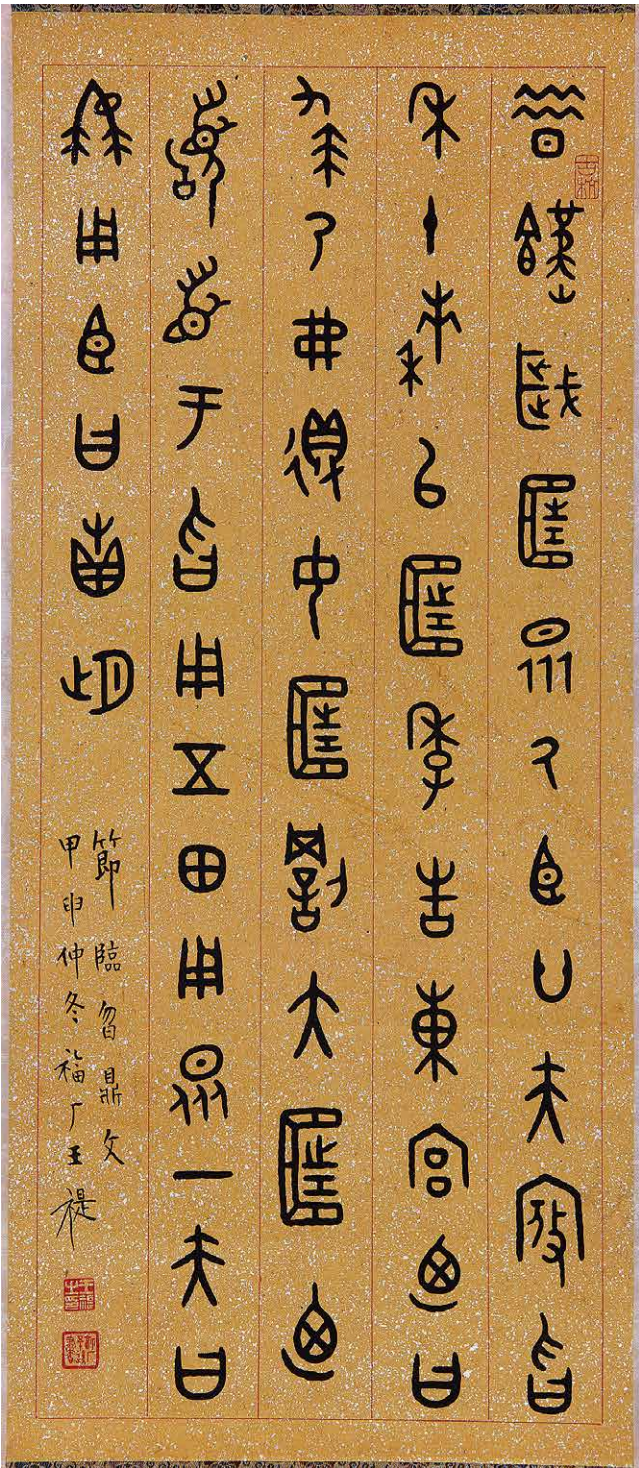 昔饉歲匡眾厥臣廿夫寇曶
禾十秭以匡季告東宮迺曰
求乃弗得女匡罰大匡迺
稽首于曶用五田用眾一夫曰
嗌用臣曰疐朏
節臨曶鼎文
甲申仲冬福厂王禔